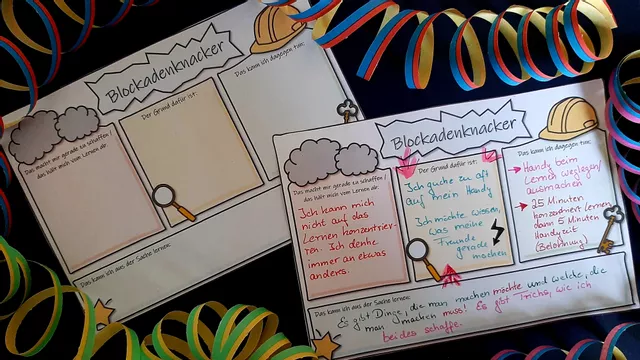 Blockadenknacker
Das macht mir gerade zu schaffen /
das hält mich vom Lernen ab:
Der Grund dafür ist:
Das kann ich dagegen tun:
Das kann ich aus der Sache lernen:
Blockadenknacker
Das macht mir gerade zu schaffen /
das hält mich vom Lernen ab:
Ich kann mich
nicht auf das
Lernen konzentrie-
ren. Ich denke
immer an etwas
anderes.
Der Grund dafür ist:
Ich gucke zu oft
auf mein Handy
Ich möchte wissen,
was meine
Freunde
gerade
machen
Das kann ich dagegen tun:
→ Handy beim
Lernen weglegen/
ausmachen
→ 25 Minuten
konzentriert Lernen
dann 5 Minuten
Handyzeit
(Belohnung)
Das kann ich aus der Sache lernen:
Es gibt Dinge, die man machen möchte und welche, die
man machen muss! Es gibt Tricks, wie ich
beides schaffe.